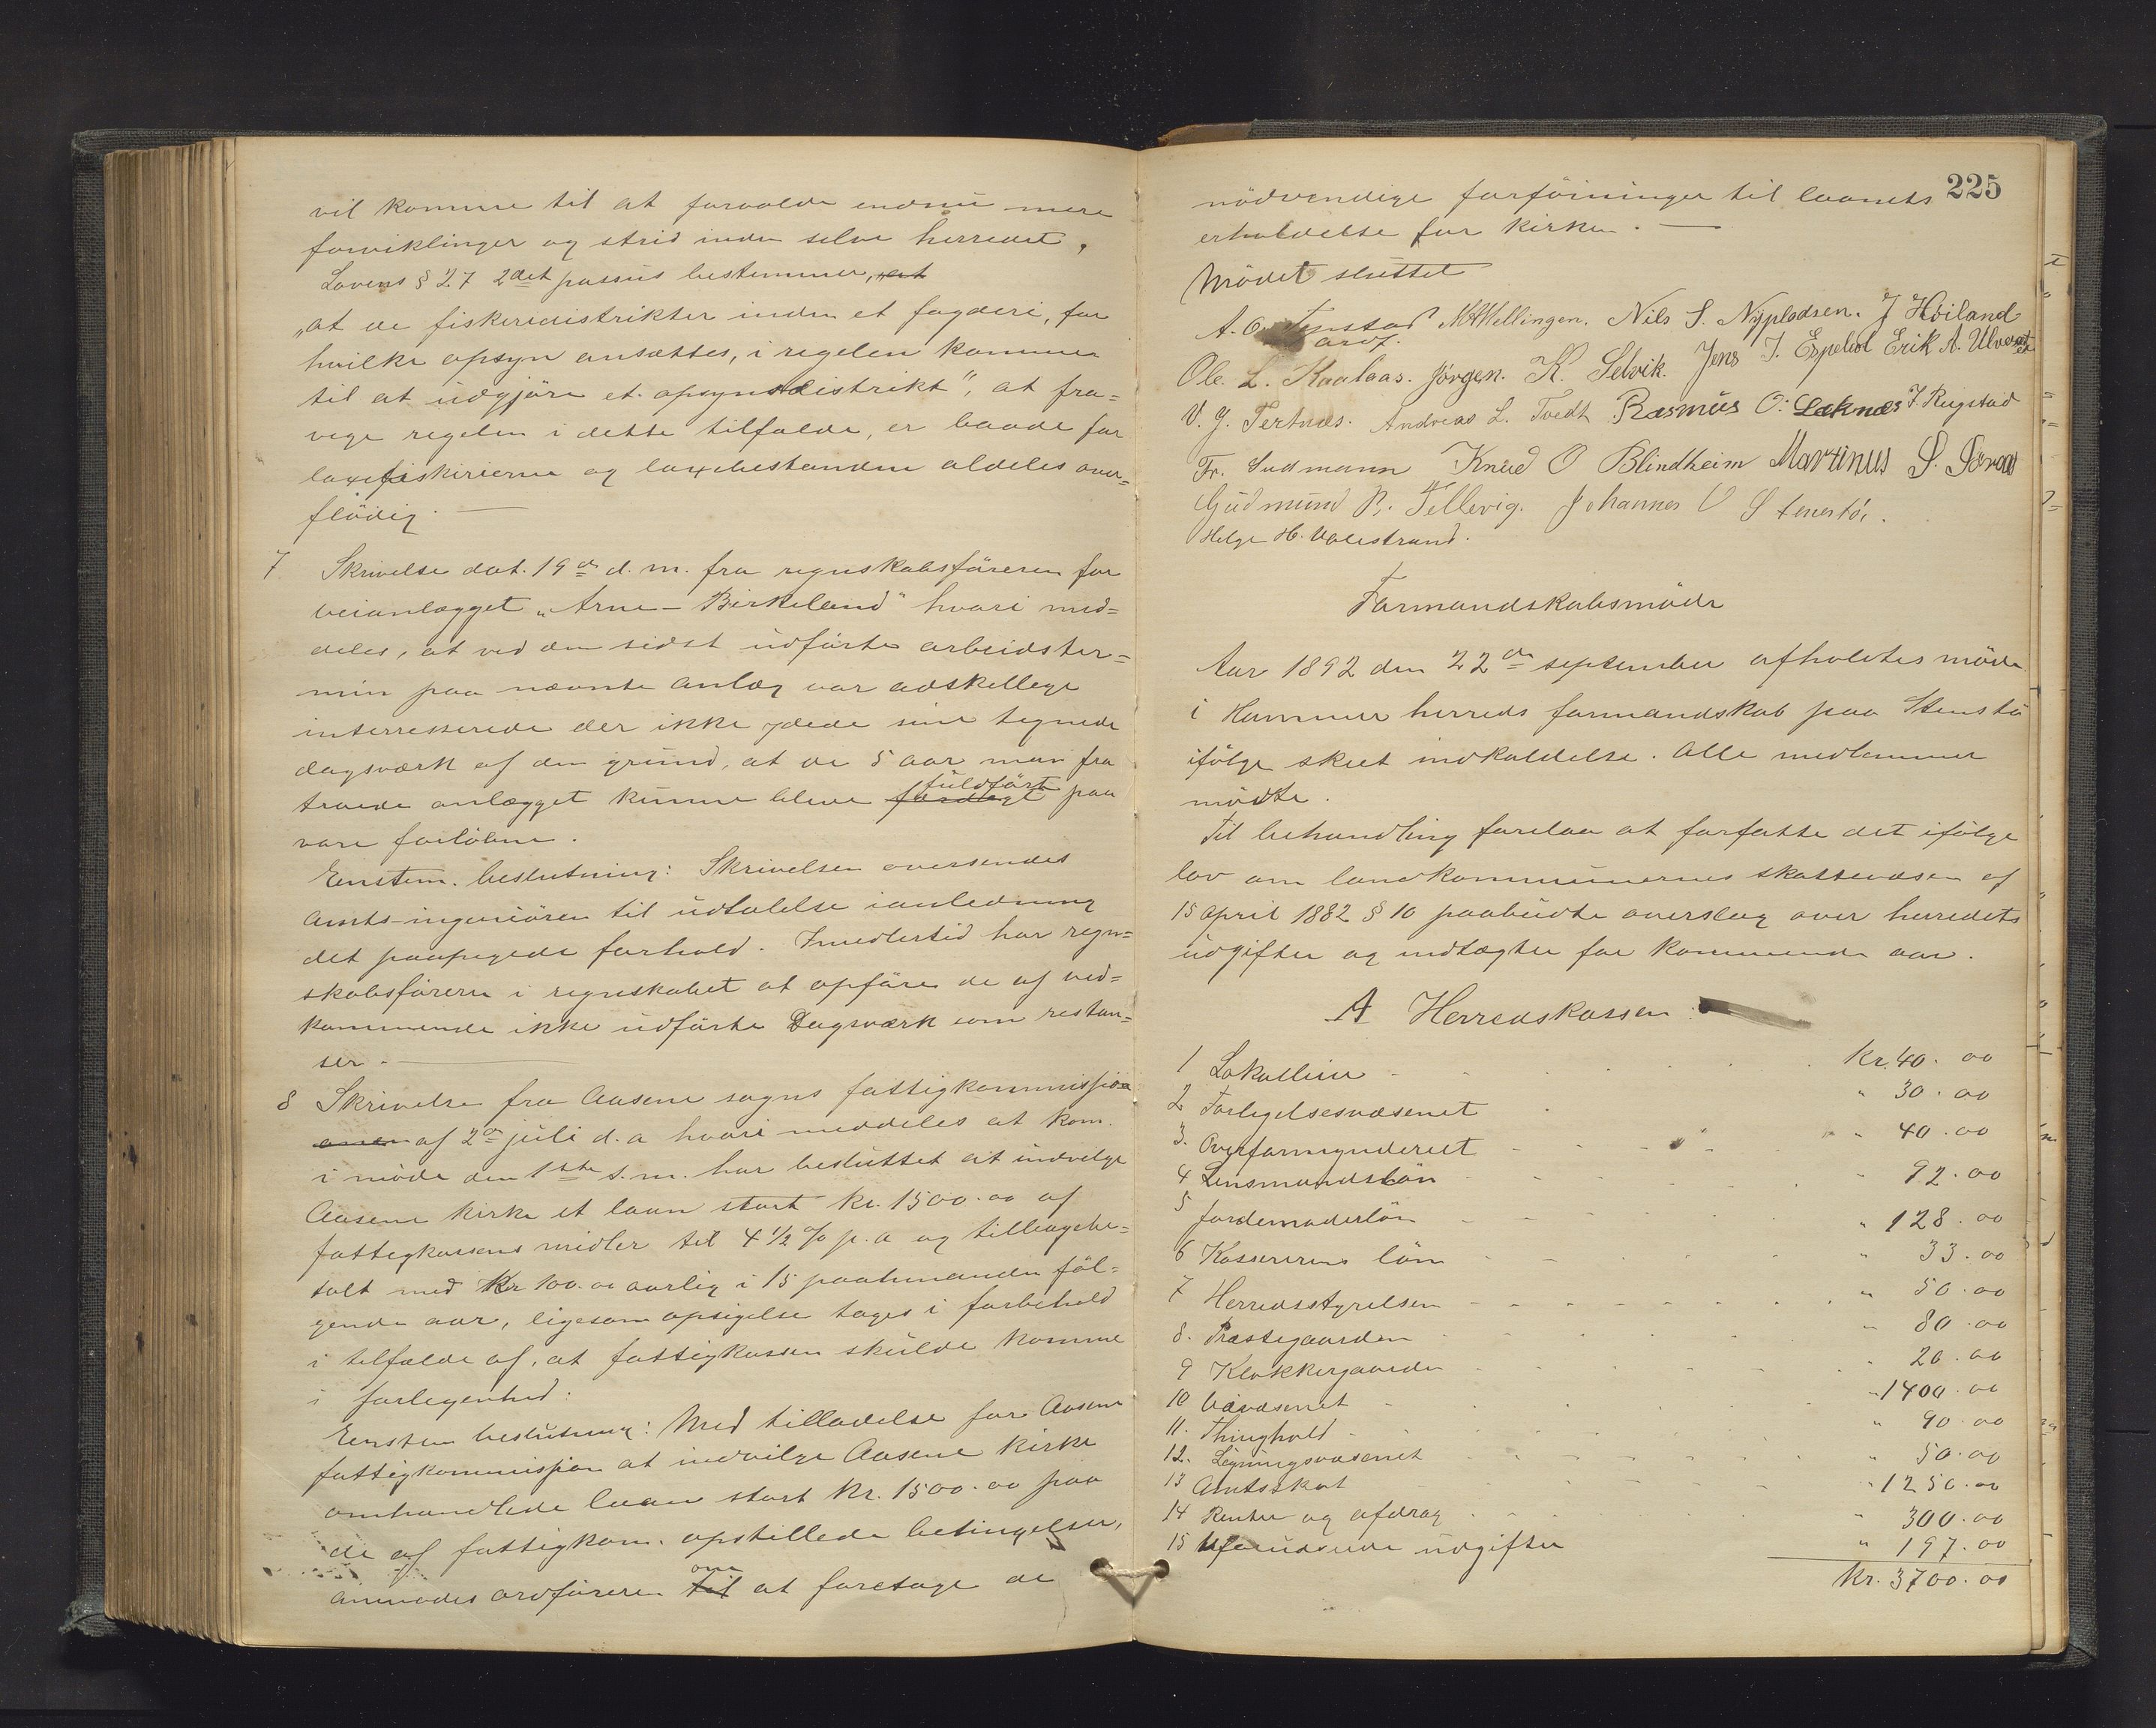 vil komme til at forvolde endnu mere
forviklinger og strid inden selve herredet,
Lovens § 27 2det passus bestemmer, at
„at de fiskeridistrikter inden et fogderi, for
hvilke opsyn ansættes, i regelen kommer
til at udgjøre et opsynsdistrikt", at fra=
vige regelen i dette tilfælde, er baade for
laxefiskerierne og laxebestanden aldeles over=
flödig.
7 Skrivelse dat. 19de d. m. fra regnskabsföreren for
veianlægget „Arne - Birkeland" hvori med=
deles, at ved den sidst udförte arbeidster=
min paa nævnte anlæg var adskellege
interresserede der ikke ydede sine tegnede
dagsværk af den grund, at de 5 aar man fra
fuldfört
troede anlægget kunne blive færdigt paa
vare forløbne.
Enstem. beslutning: Skrivelsen oversendes
amts-ingeniören til udtalelse ianledning
det paapegede forhold. Imidlertid har regn=
skabsföreren i regnskabet at opföre de af ved=
kommende ikke udförte Dagsværk som restan=
ser.
8 Skrivelse fra Aasene sogns fattigkommission
onen af 2de juli d. a hvori meddeles at kom.
i möde den 1ste s. m. har besluttet at indvilge
Aasene kirke et laan stort kr. 1500.00 af
fattigkassens midler til 4 1/2 % p. a og tilbagebe=
talt med Kr 100.00 aarlig i 15 paahinanden föl=
gende aar, ligesom opsigelse tages i forbehold
i tilfælde af, at fattigkassen skulde komme
i forlegenhed.
Enstem beslutning: Med tilladelse for Aasene
fattigkommission at indvilge Aasene kirke
omhandlede laan stort Kr. 1500.00 paa
de af fattigkom. opstillede betingelser,
om
anmodes ordföreren til at foretage de
225
nödvendige forföininger til laanets
erholdelse for kirken.
Mödet sluttet
A. O. Tenstad M A Mellingen. Nils S. Nyplodsen. J Höiland
ordf.
Ole L. Kaalaas. Jörgen. K. Selvik. Jens J. Espelid Erik A. Ulvesæt
V. J. Tertnæs. Andreas L. Tvedt Rasmus O: Leknæs J. Rugstad
Fr. Sudmann Knud O Blindheim Martinus S.
Gudmund R. Tellevig. Johannes O Stenestö.
Helge H. Valestrand.
Formandskabsmöde
Aar 1892 den 22de september afholdtes möde
i Hammer herreds formandskab paa Stenstö
ifölge skeet indkaldelse. Alle medlemmer
mödte.
Til behandling forelaa at forfatte det ifölge
lov om landkommunernes skattevæsen af
15 april 1882 § 10 paabudte overslag over herredets
udgifter og indtægter for kommende aar.
A Herredskassen:
1 Lokalleie Kr. 40.00
2 Forligelsesvæsenet " 30.00
3. Overformynderiet " 40.00
4 Lensmandslön " 92.00
5 Jordemoderlön " 128.00
6 Kassererens lön " 33.00
7 Herredsstyrelsen " 50.00
8. Præstegaarden " 80.00
9 Klokkergaarden " 20.00
10 Veivæsenet " 1400.00
11. Thinghold " 90.00
12. Ligningsvæsenet " 50.00
13 Amtsskat " 1250.00
14 Renter og afdrag " 300.00
15 Uforudseede udgifter " 197.00
Kr. 3700.00